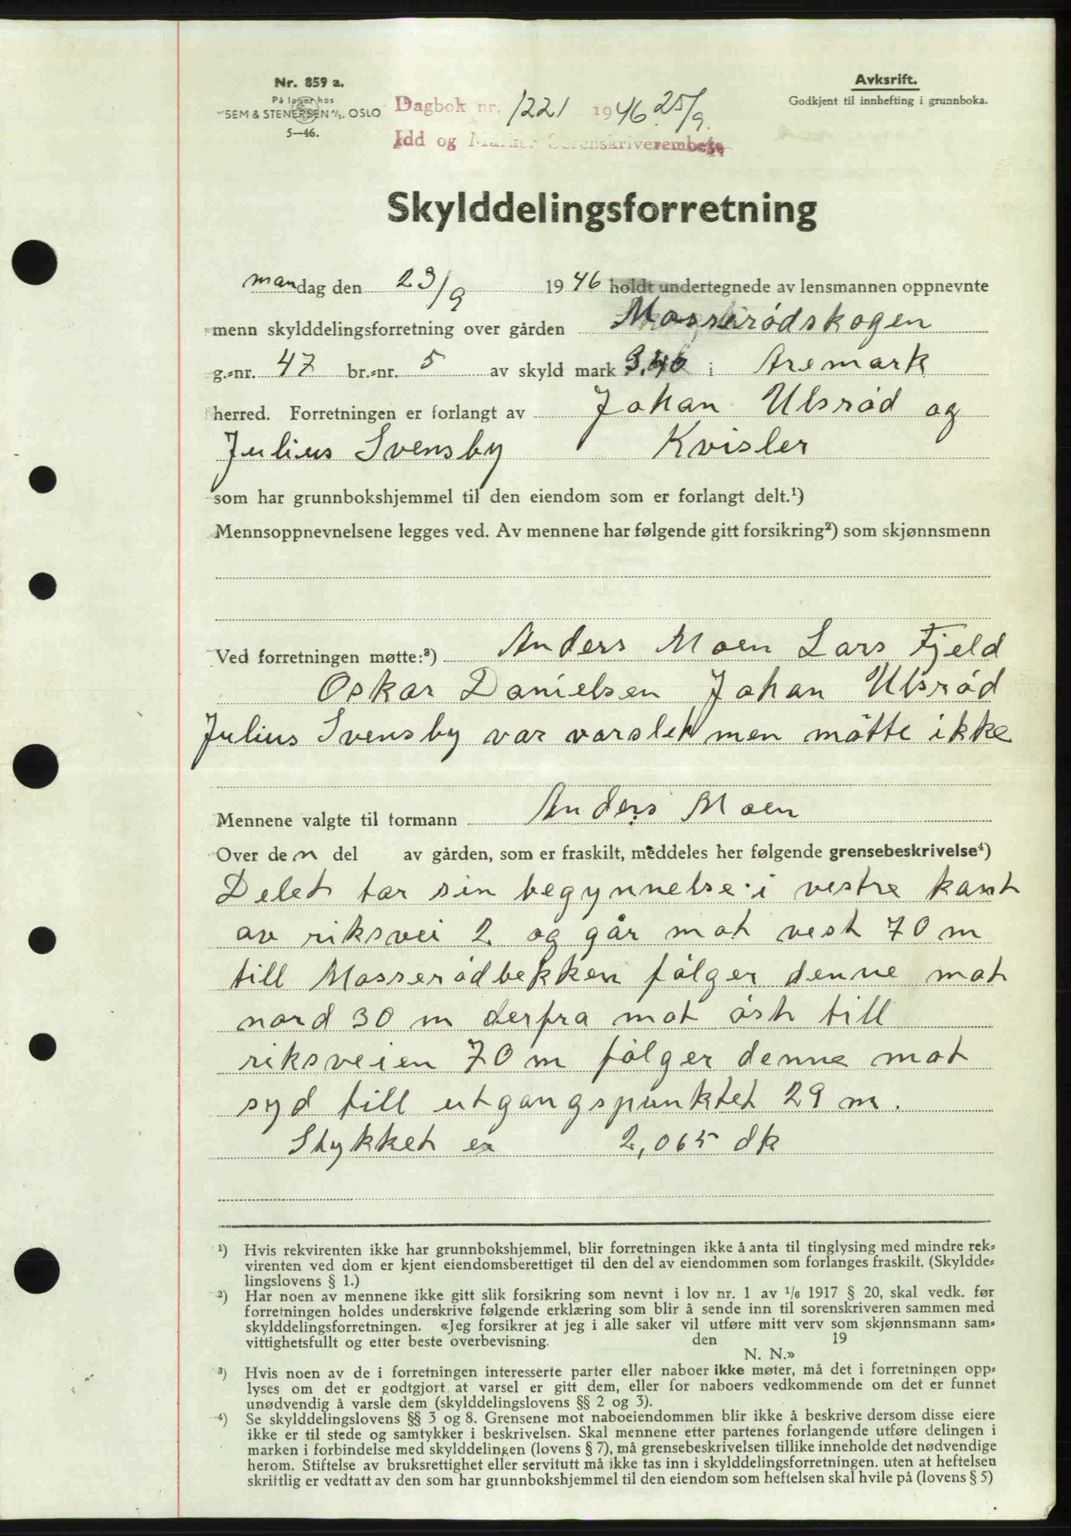 Nr. 859 a.
På lager hos
SEM & STENERSEN A/S. OSLO
5—46.
Avksrift.
Godkjent til innhefting i grunnboka.
Dagbok nr. 1221 1946 25/9.
Idd og Marker Sorenskriverembete
Skylddelingsforretning
mandag den 23/9 1946 holdt undertegnede av lensmannen oppnevnte
menn skylddelingsforretning over gården Mosserødskogen
g.-nr. 47 br.-nr. 5 av skyld mark 3.40 i Aremark
herred. Forretningen er forlangt av Johan Ulsrød og
Julius Svensby Kvisler
som har grunnbokshjemmel til den eiendom som er forlangt delt.¹)
Mennsoppnevnelsene legges ved. Av mennene har følgende gitt forsikring²) som skjønnsmenn
Ved forretningen møtte:³) Anders Moen Lars Fjeld
Oskar Danielsen Johan Ulsrød
Julius Svensby var varslet men møtte ikke
Mennene valgte til formann Anders Moen
Over den del av gården, som er fraskilt, meddeles her følgende grensebeskrivelse⁴)
Delet tar sin begynnelse i vestre kant
av riksvei 2 og går mot vest 70 m
till Mosserødbekken følger denne mot
nord 30 m derfra mot øst till
riksveien 70 m følger denne mot
syd till utgangspunktet 29 m.
Stykket er 2,065 dk
¹) Hvis rekvirenten ikke har grunnbokshjemmel, blir forretningen ikke å anta til tinglysing med mindre rek-
virenten ved dom er kjent eiendomsberettiget til den del av eiendommen som forlanges fraskilt. (Skyldde-
lingslovens § 1.)
²) Har noen av mennene ikke gitt slik forsikring som nevnt i lov nr. 1 av 1/6 1917 § 20, skal vedk. før
forretningen holdes underskrive følgende erklæring som blir å sende inn til sorenskriveren sammen med
skylddelingsforretningen. «Jeg forsikrer at jeg i alle saker vil utføre mitt verv som skjønnsmann sam-
vittighetsfullt og etter beste overbevisning. den 19
N. N.»
³) Hvis noen av de i forretningen interesserte parter eller naboer ikke møter, må det i forretningen opp-
lyses om det er godtgjort at varsel er gitt dem, eller for naboers vedkommende om det er funnet
unødvendig å varsle dem (skylddelingslovens §§ 2 og 3).
⁴) Se skylddelingslovens §§ 3 og 8. Grensene mot naboeiendommen blir ikke å beskrive dersom disse eiere
ikke er til stede og samtykker i beskrivelsen. Skal mennene etter partenes forlangende utføre delingen i
marken i forbindelse med skylddelingen (lovens § 7), må grensebeskrivelsen tillike inneholde det nødvendige
herom. Stiftelse av bruksrettighet eller servitutt må ikke tas inn i skylddelingsforretningen. uten at heftelsen
skriftlig er vedtatt av den som har grunnbokshjemmel til den eiendom som heftelsen skal hvile på (lovens § 5)